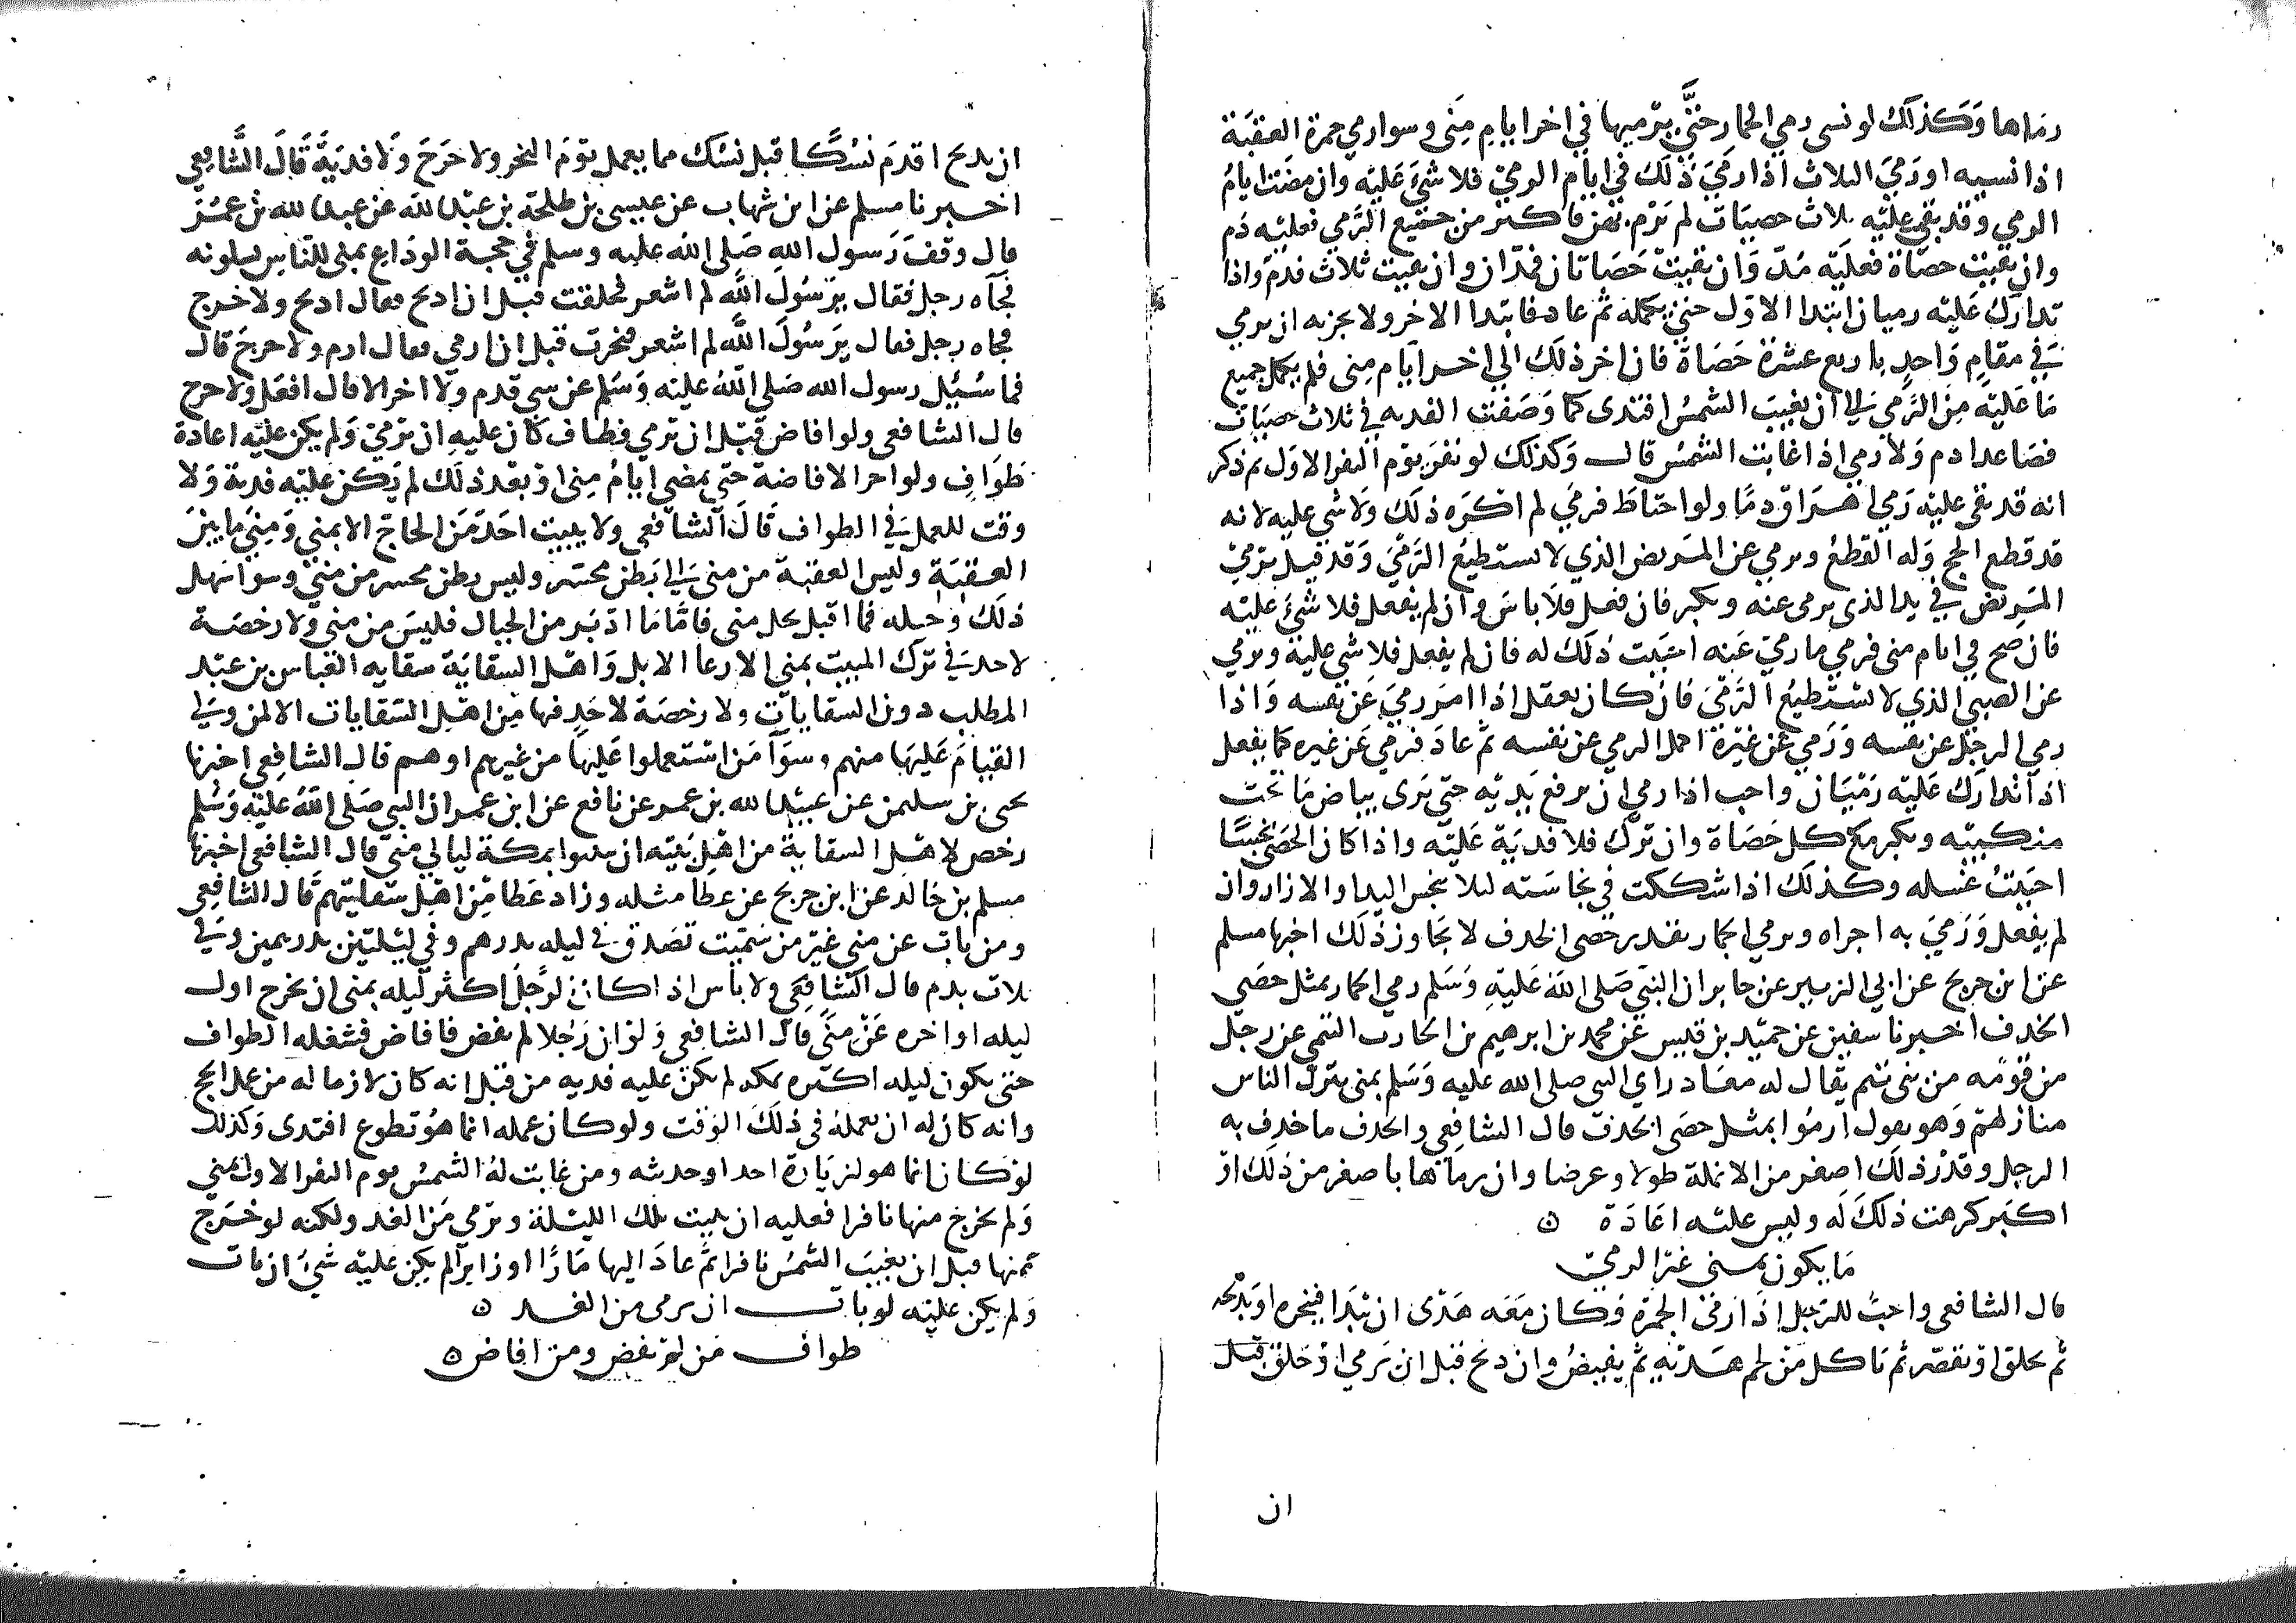 رماها وكذلك لو نسي رمي الجمار حتى يرميها في اخر ايام منى وسوا رمي جمرة العقبة
اذا نسيه او رمي الثلاث اذا رمي ذلك في ايام الرمي فلا شيء عليه وان مضت ايام
الرمي وقد بقي عليه ثلاث حصيات لم يرم بهن فاكثر من جميع الرمي فعليه دم
وان بقيت حصاة فعليه مد وان بقيت حصاتان فمدان وان بقيت ثلاث فدم واذا
تدارك عليه رميان ابتدا الاول حتى يكمله ثم عاد فابتدا الاخر ولا يجزيه ان يرمي
في مقام واحد باربع عشرة حصاة فان اخر ذلك الى اخر ايام منى فلم يكمل جميع
ما عليه من الرمي الى ان يغيب الشمس افتدى كما وصفت الفدية في ثلاث حصيات
فصاعدا دم ولا رمي اذا غابت الشمس قال وكذلك لو نفر يوم النفر الاول ثم ذكر
انه قد بقي عليه رمي اهراق دما ولو احتاط فرمى لم اكره ذلك ولا شي عليه لانه
قد قطع الحج وله القطع ويرمي عن المريض الذي لا يستطيع الرمي وقد قيل يرمي
المريض في يد الذي يرمى عنه ويكبر فان فعل فلا باس وان لم يفعل فلا شيء عليه
فان صح في ايام منى فرمي ما رمي عنه احببت ذلك له فان لم يفعل فلا شي عليه ويرمي
عن الصبي الذي لا يستطيع الرمي فان كان يعقل اذا امر رمي عن نفسه واذا
رمي الرجل عن نفسه ورمي عن غيره اكمل الرمي عن نفسه ثم عاد فرمي عن غيره كما يفعل
اذا تدارك عليه رميان واحب اذا رمي ان يرفع يديه حتى يرى بياض ما تحت
منكبيه ويكبر مع كل حصاة وان ترك فلا فدية عليه واذا كان الحصى نجسا
احببت غسله وكذلك اذا شككت في نجاسته لئلا ينجس اليد او الازار وان
لم يفعل ورمي به اجزاه ويرمي الجمار بقدر حصى الخذف لا يجاوز ذلك اخبرنا مسلم
عن ابن جريج عن ابي الزبير عن جابر ان النبي صلى الله عليه وسلم رمي الجمار بمثل حصى
الخذف اخبرنا سفين عن حميد بن قيس عن محمد بن ابرهيم بن الحارث التيمي عن رجل
من قومه من بني تيم يقال له معاذ راي النبي صلى الله عليه وسلم بمنى ينزل الناس
منازلهم وهو يقول ارموا بمثل حصى الخذف قال الشافعي والخذف ما خذف به
الرجل وقدر ذلك اصغر من الانملة طولا وعرضا وان رماها باصغر من ذلك او
اكبر كرهت ذلك له وليس عليه اعادة ٥
ما يكون بمنى غير الرمي
قال الشافعي واحب للرجل اذا رمى الجمرة فكان معه هدى ان يبدا فينحره او يذبحه
ثم يحلق او يقصر ثم ياكل من لحم هديه ثم يفيض وان ذبح قبل ان يرمي او حلق قبل
ان
ان يذبح او قدم نسكا قبل نسك مما يعمل يوم النحر ولا حرج ولا فدية قال الشافعي
اخبرنا مسلم عن ابن شهاب عن عيسى بن طلحة بن عبد الله عن عبد الله بن عمر
قال وقف رسول الله صلى الله عليه وسلم في حجة الوداع بمنى للناس يسلونه
فجاه رجل فقال يرسول الله لم اشعر فحلقت قبل ان اذبح فقال اذبح ولا حرج
فجاه رجل فقال يرسول الله لم اشعر فنحرت قبل ان ارمي فقال ارم ولا حرج قال
فما سئل رسول الله صلى الله عليه وسلم عن شي قدم ولا اخر الا قال افعل ولا حرج
قال الشافعي ولو افاض قبل ان يرمي فطاف كان عليه ان يرمي ولم يكن عليه اعادة
طواف ولو اخر الافاضة حتى يمضي ايام منى او بعد ذلك لم يكن عليه فدية ولا
وقت للعمل في الطواف قال الشافعي ولا يبيت احد من الحاج الا بمنى ومنى ما بين
العقبة وليس العقبة من منى الى بطن محسر وليس بطن محسر من منى وسوا سهل
ذلك وجبله فما اقبل على منى فاما ما ادبر من الجبال فليس من منى ولا رخصة
لاحد في ترك المبيت بمنى الا رعا الابل واهل السقاية سقاية العباس بن عبد
المطلب دون السقايات ولا رخصة لاحد فيها من اهل السقايات الا لمن ولي
القيام عليها منهم وسوا من استعملوا عليها من غيرهم او هم قال الشافعي اخبرنا
يحيى بن سليمن عن عبيد الله بن عمر عن نافع عن ابن عمر ان النبي صلى الله عليه وسلم
رخص لاهل السقاية من اهل بيته ان يبيتوا بمكة ليالي منى قال الشافعي اخبرنا
مسلم بن خالد عن ابن جريج عن عطا مثله وزاد عطا من اهل سقايتهم قال الشافعي
ومن بات عن منى غير من سميت تصدق في ليله بدرهم وفي ليلتين بدرهمين وفي
ثلاث بدم قال الشافعي ولا باس اذا كان الرجل اكثر ليله بمنى ان يخرج اول
ليله او اخره عن منى قال الشافعي ولو ان رجلا لم يفض فافاض فشغله الطواف
حتى يكون ليله اكثره بمكه لم يكن عليه فديه من قبل انه كان لازما له من عمل الحج
وانه كان له ان يعمله في ذلك الوقت ولو كان عمله انما هو تطوع افتدى وكذلك
لو كان انما هو لزيارة احد او حديثه ومن غابت له الشمس يوم النفر الاول بمنى
ولم يخرج منها نافرا فعليه ان يبيت تلك الليلة ويرمي من الغد ولكنه لو خرج
منها قبل ان يغيب الشمس نافرا ثم عاد اليها مارا او زايرا لم يكن عليه شيء ان بات
ولم يكن عليه لو بات ان يرمى من الغد ٥
طواف من لم يفض ومن افاض ٥